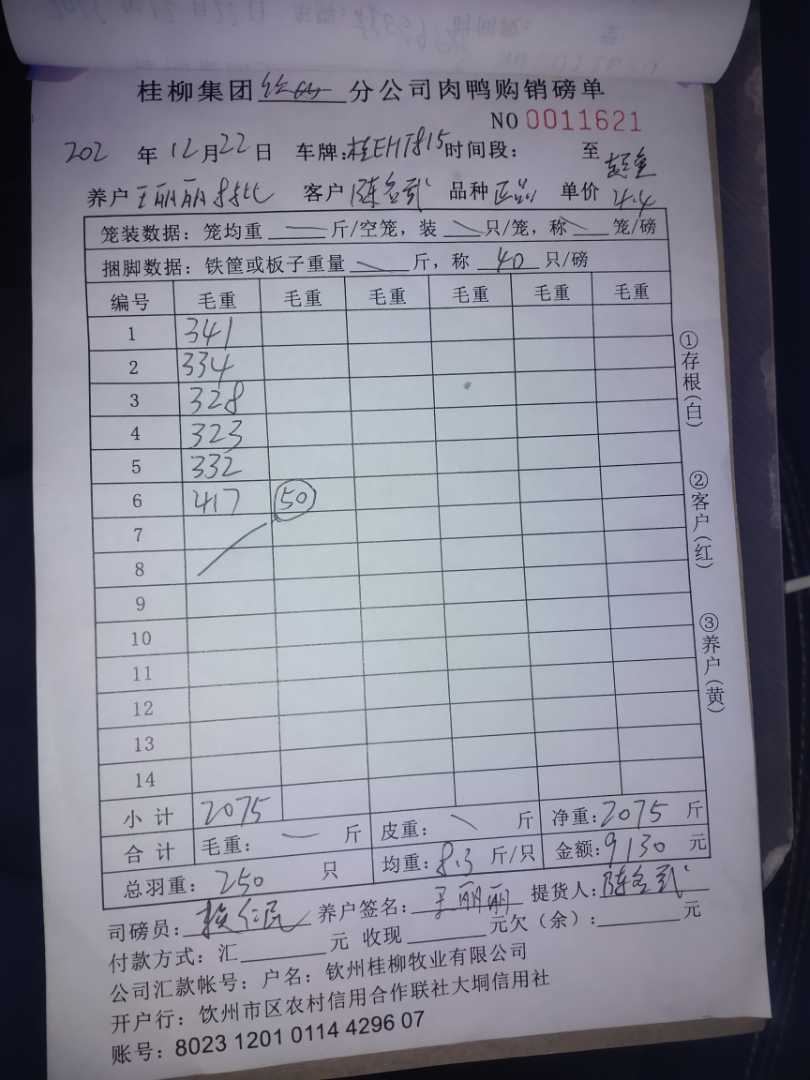 桂柳集团 分公司肉鸭购销磅单
NO 0011621
202 年 12月22日 车牌:桂EHT815 时间段: 至
养户 王丽丽 客户 陈名武 品种 正品 单价 超重 4.4
笼装数据:笼均重 — 斤/空笼,装 \ 只/笼,称 \ 笼/磅
捆脚数据:铁筐或板子重量 \ 斤,称 40 只/磅
编号 毛重 毛重 毛重 毛重 毛重 毛重
1 341
2 334
3 328
4 323
5 332
6 417 50
7
8
9
10
11
12
13
14
小计 2075
合计 毛重: — 斤 皮重: \ 斤 净重:2075 斤
总羽重:250 只 均重:8.3 斤/只 金额:9130 元
司磅员: 养户签名:王丽丽 提货人:陈名武
付款方式:汇 元 收现 元欠(余): 元
公司汇款帐号:户名:钦州桂柳牧业有限公司
开户行:钦州市区农村信用合作联社大垌信用社
账号:8023 1201 0114 4296 07
①存根(白)
②客户(红)
③养户(黄)